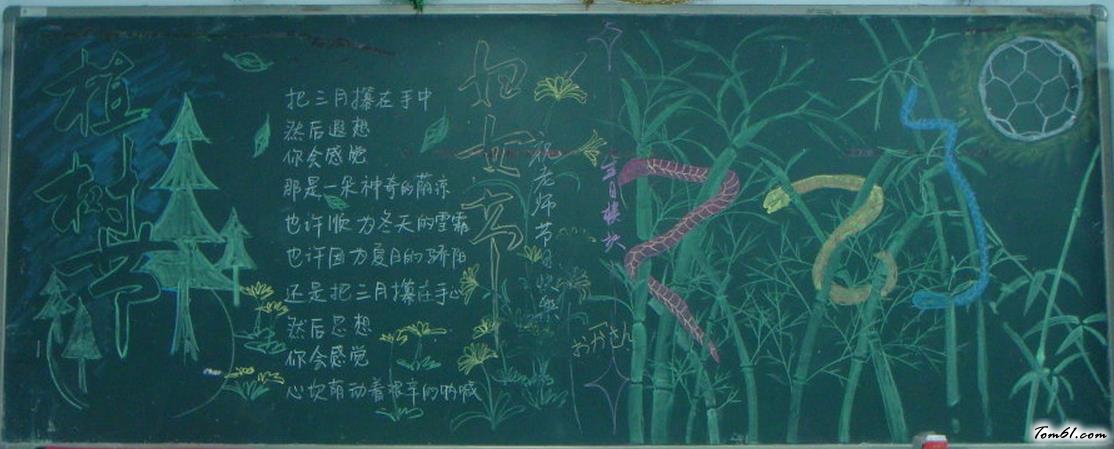 植树节
把三月攥在手中
然后遐想
你会感觉
那是一朵神奇的荫凉
也许顺为冬天的雪霜
也许因为夏日的骄阳
还是把三月攥在手心
然后思想
你会感觉
心坎萌动着根芽的呐喊
祝老师节日快乐
おかさん
Tom61.com